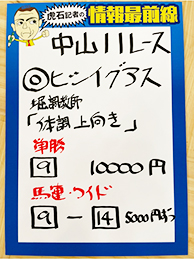 虎石記者の
情報最前線
中山11レース
◎ヒシイグアス
堀調教師
「体調上向き」
単勝
9 10000円
馬連・ワイド
9-14 5000円ずつ